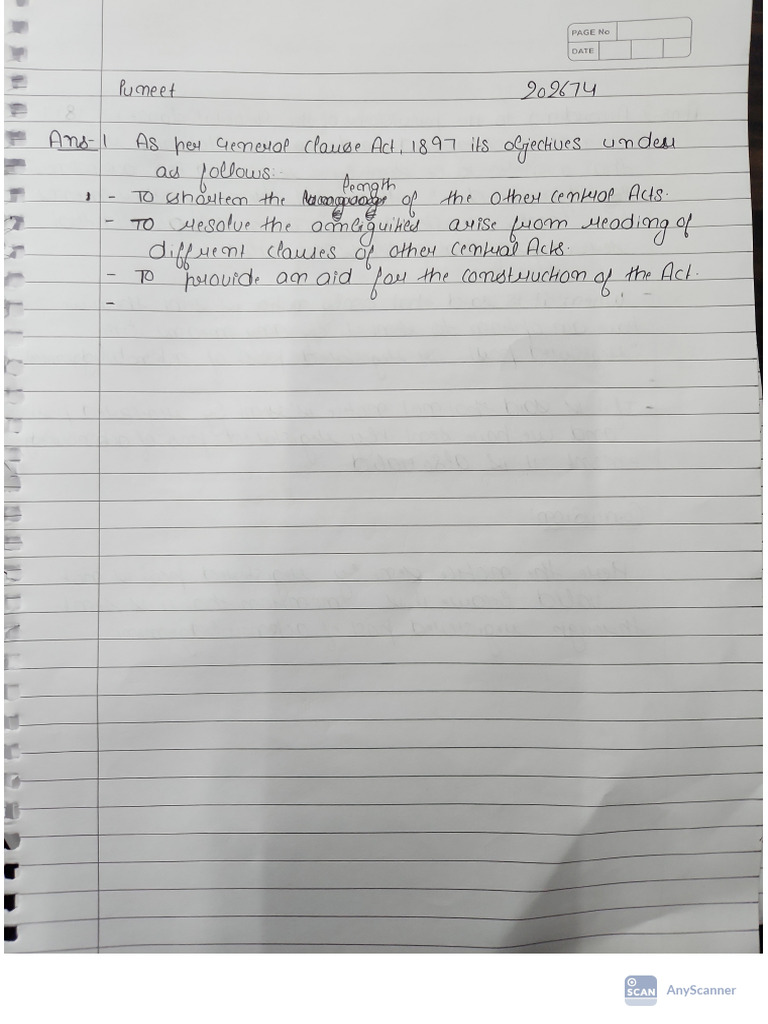 PAGE No
DATE
Puneet 202674
Ans-1 As per General clause Act, 1897 its objectives under
as follows:-
- To shorten the length of the other central Acts.
- To resolve the ambiguities arise from reading of
different clauses of other central Acts.
- To provide an aid for the construction of the Act.
-
SCAN AnyScanner